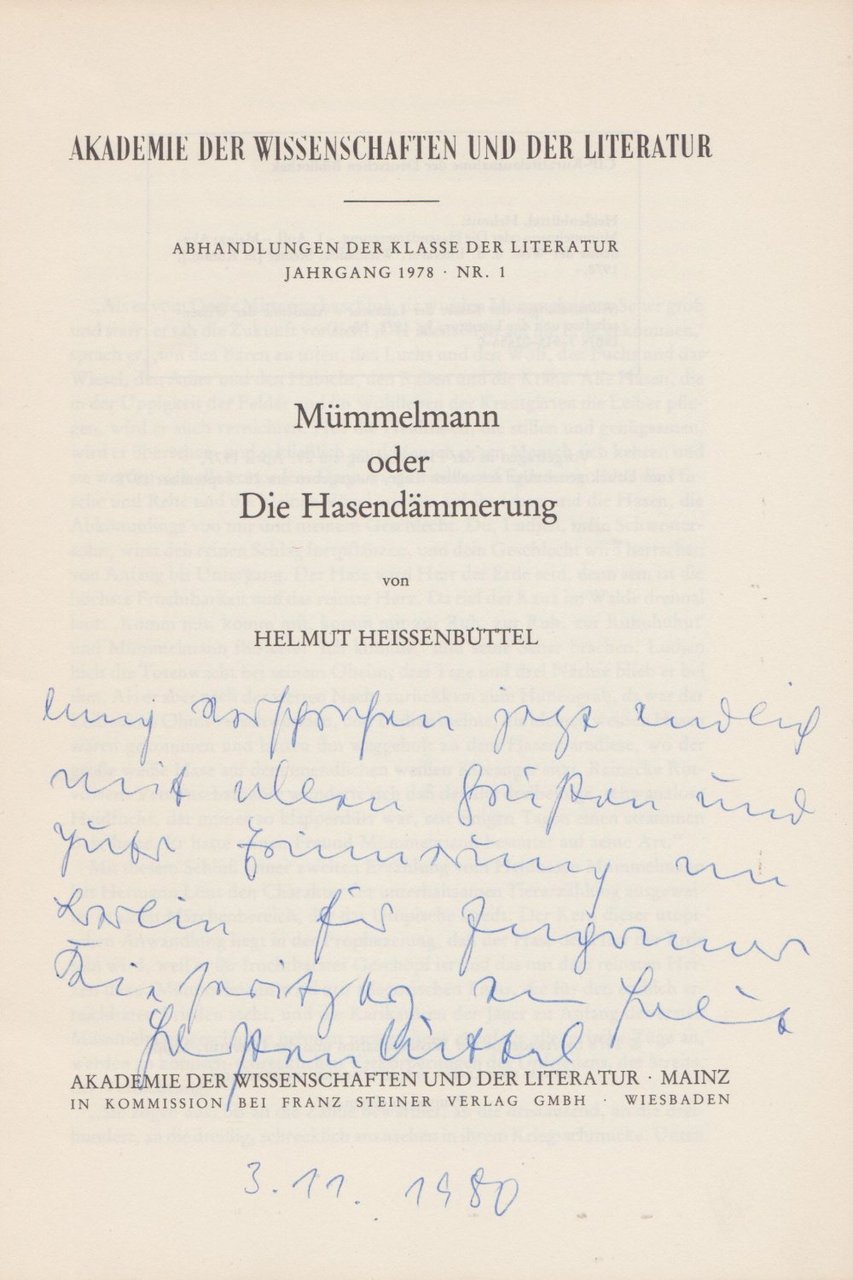 AKADEMIE DER WISSENSCHAFTEN UND DER LITERATUR
ABHANDLUNGEN DER KLASSE DER LITERATUR
JAHRGANG 1978 · NR. 1
Mümmelmann
oder
Die Hasendämmerung
von
HELMUT HEISSENBÜTTEL
lang versprochen jetzt endlich
mit allen Grüßen und
guter Erinnerung an
Berlin für Ingomar
von
Heißenbüttel
AKADEMIE DER WISSENSCHAFTEN UND DER LITERATUR · MAINZ
IN KOMMISSION BEI FRANZ STEINER VERLAG GMBH · WIESBADEN
3.11.1980